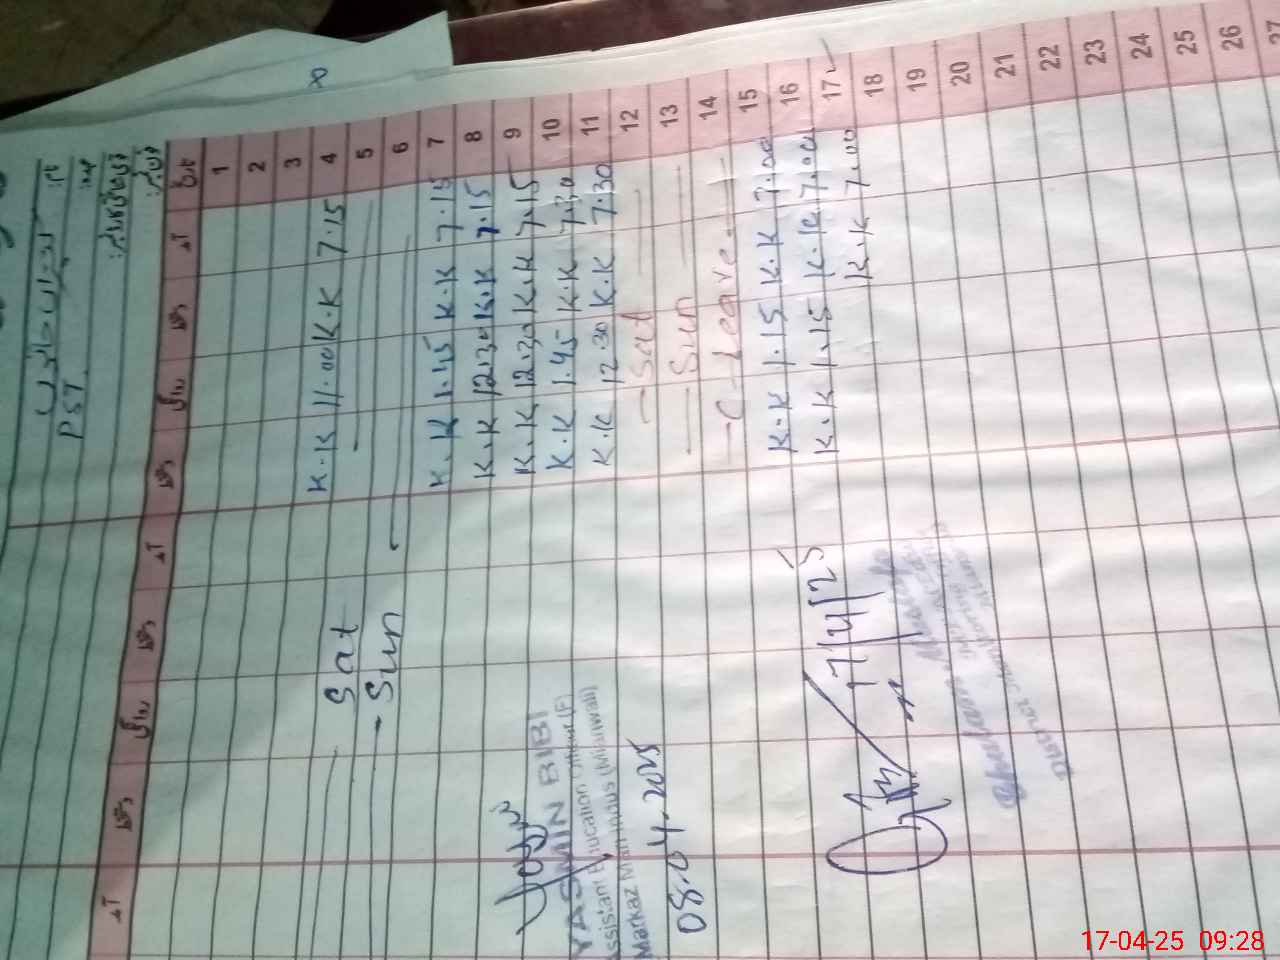 نام:
عہدہ: PST
تاریخ آمد دستخط روانگی دستخط آمد دستخط روانگی دستخط آمد
1
2
3
K.K 11.00 K.K 7.15 4
Sat 5
Sun 6
K.K 1.45 K.K 7.15 7
K.K 12.30 K.K 7.15 8
K.K 12.30 K.K 7.15 9
K.K 1.45 K.K 7.30 10
K.K 12.30 K.K 7.30 11
Sat 12
Sun 13
C-leave 14
15
K.K 1.15 K.K 7.00 16
K.K 1.15 K.K 7.00 17
K.K 7.00 18
19
20
21
22
23
24
25
26
27
YASMIN BIBI
Assistant Education Officer (F)
Markaz Mari Indus (Mianwali)
08.04.2025
17/4/25
17-04-25 09:28